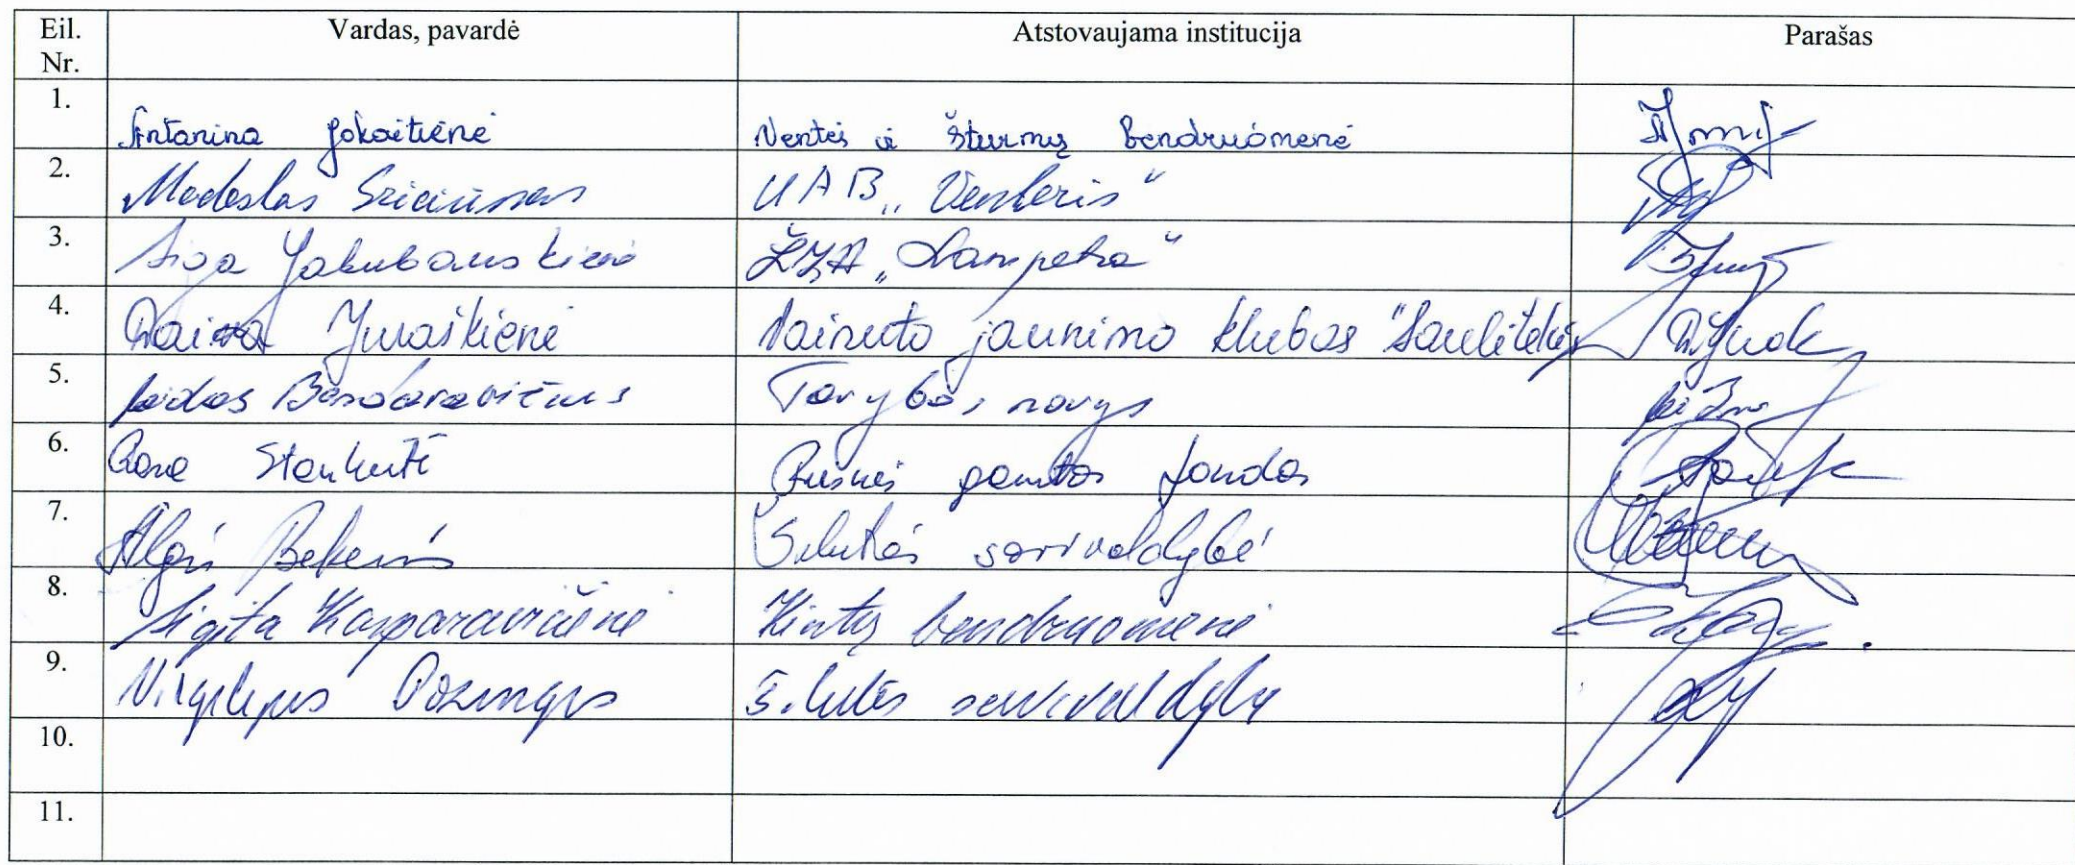 Eil. Nr. Vardas, pavardė Atstovaujama institucija Parašas
1. Antanina Jokaitienė Ventės ir Šturmų bendruomenė
2. Modestas UAB „Ventkeris“
3. Jakubauskienė ŽŽA „Lampetra“
4. Daina Juraškienė Vainuto jaunimo klubas "Saulėtekis
5. Bandaravičius Tarybos narys
6. Rasa Stankutė Rusnės gamtos fondas
7. Algis Bekeris Šilutės savivaldybė
8. Sigita Kasparavičienė Kintų bendruomenė
9. Virgilijus Pozingis Šilutės savivaldybė
10.
11.